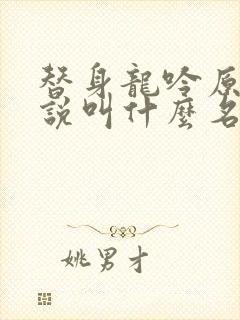 替身龍吟原
說叫什麼名
姚男才